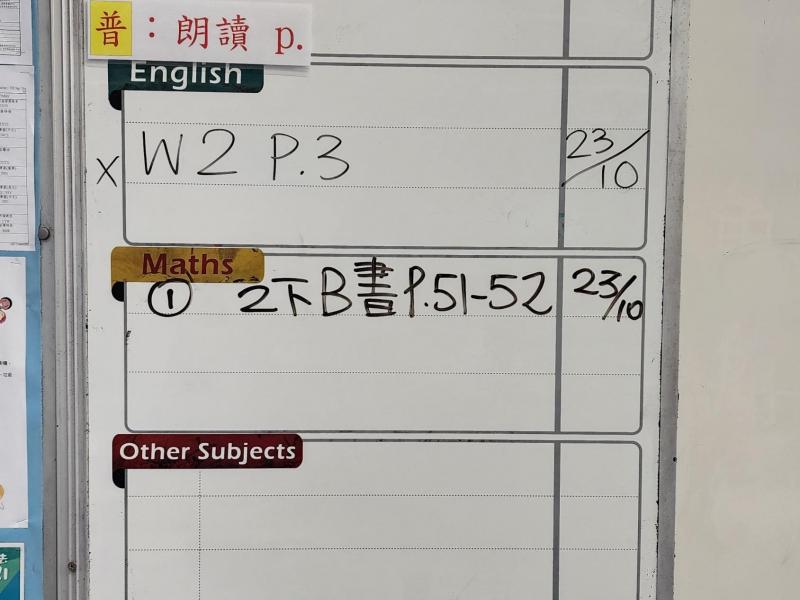 普：朗讀 p.
English
X W2 P.3 23/10
Maths
① 2下B書 P.51-52 23/10
Other Subjects